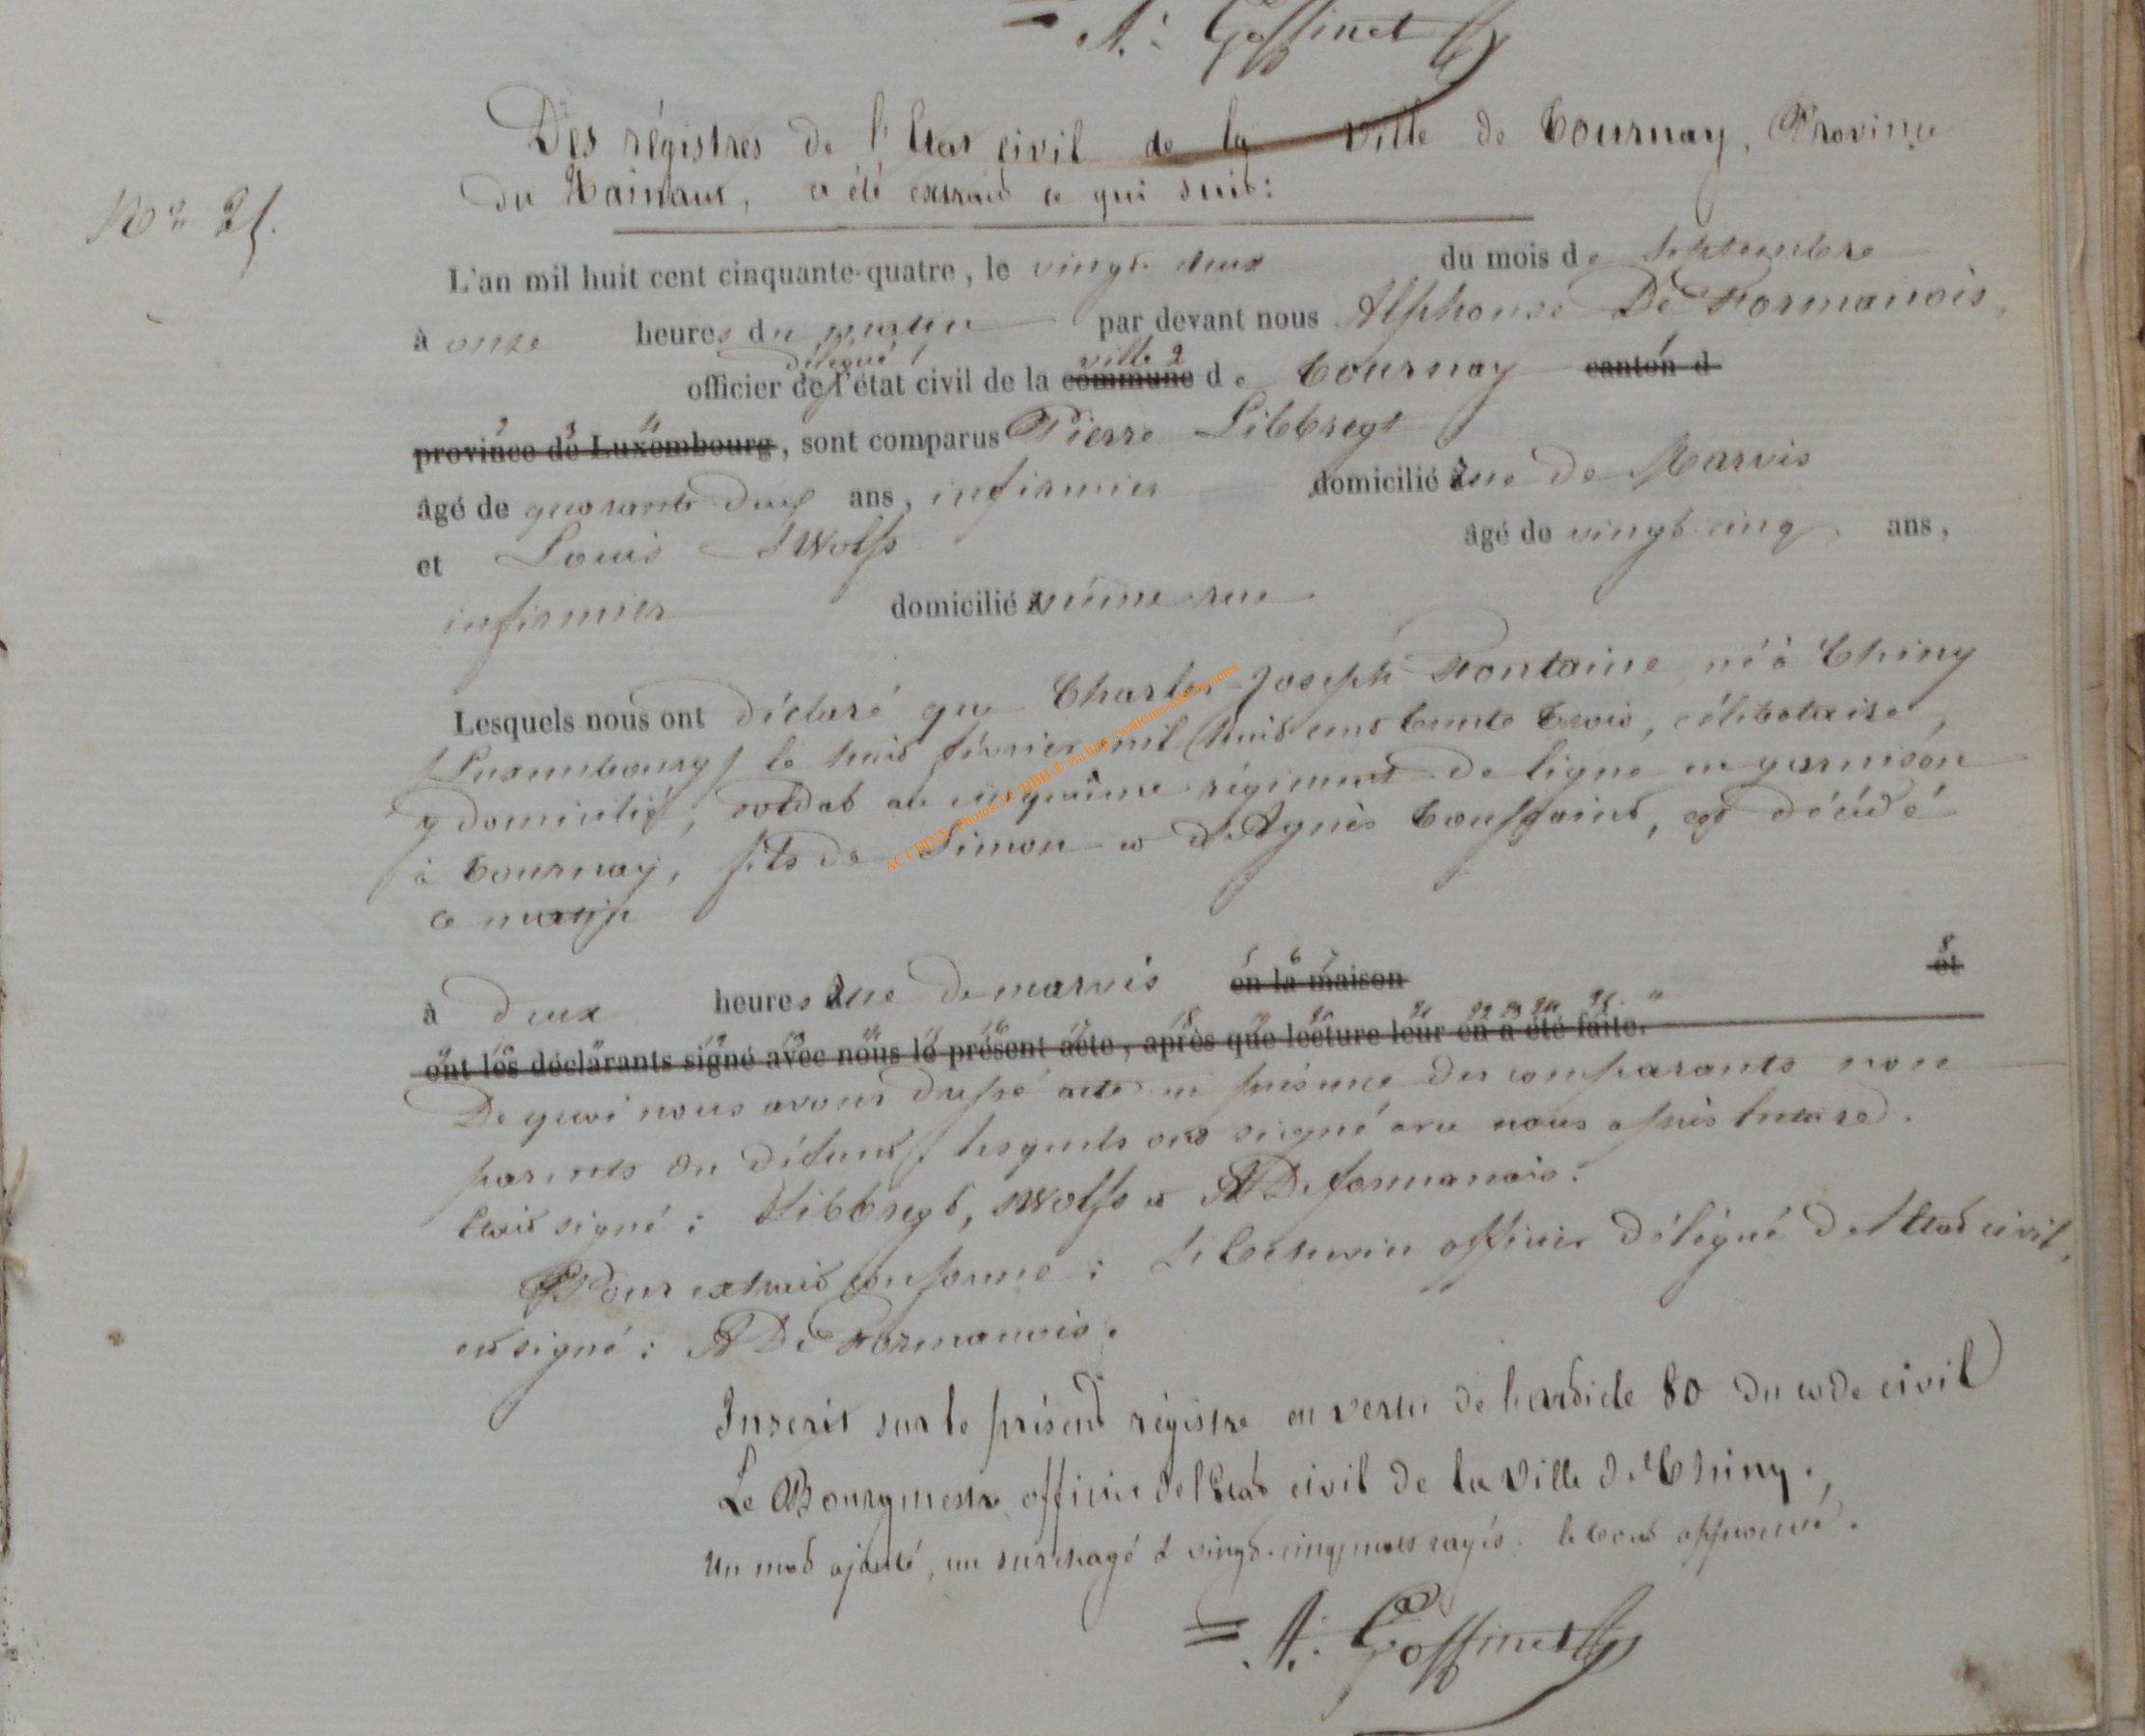 = A: Goffinet
Des régistres de l'Etat civil de la ville de Tournay, Province
du Hainaut, a été extrait ce qui suit:
No 25.
L'an mil huit cent cinquante-quatre, le vingt deux du mois de Septembre
à onze heures du matin par devant nous Alphonse De Formanois,
délégué ville
officier de l'état civil de la commune de Tournay canton d
province de Luxembourg, sont comparus Pierre Libbregt
âgé de quarante deux ans, infirmier domicilié rue de Marvis
et Louis SWolfs âgé de vingt-cinq ans,
infirmier domicilié même rue
Lesquels nous ont déclaré que Charles-Joseph Fontaine né à Chiny
(Luxembourg) le huit février mil huit cent trente trois, célibataire,
y domicilié, soldat au cinquième régiment de ligne en garnison
à Tournay, fils de Simon et d'Agnès Toussaint, est décédé
ce matin
à deux heures rue de marvis en la maison et
ont les déclarants signé avec nous le présent acte, après que lecture leur en a été faite.
De quoi nous avons dressé acte en présence des comparants non
parents du défunt, lesquels ont signé avec nous après lecture.
Etait signé: Libbregt, SWolfs et A DeFormanois.
Pour extrait conforme: L'Echevin officier délégué de l'Etat civil,
est signé: A De Formanois.
Inscrit sur le présent régistre en vertu de l'article 80 du code civil
Le Bourgmestre officier de l'Etat civil de la Ville de Chiny.,
Un mot ajouté, un surchagé & vingt-cinq mots rayés. le tout approuvé.
= A. Goffinet